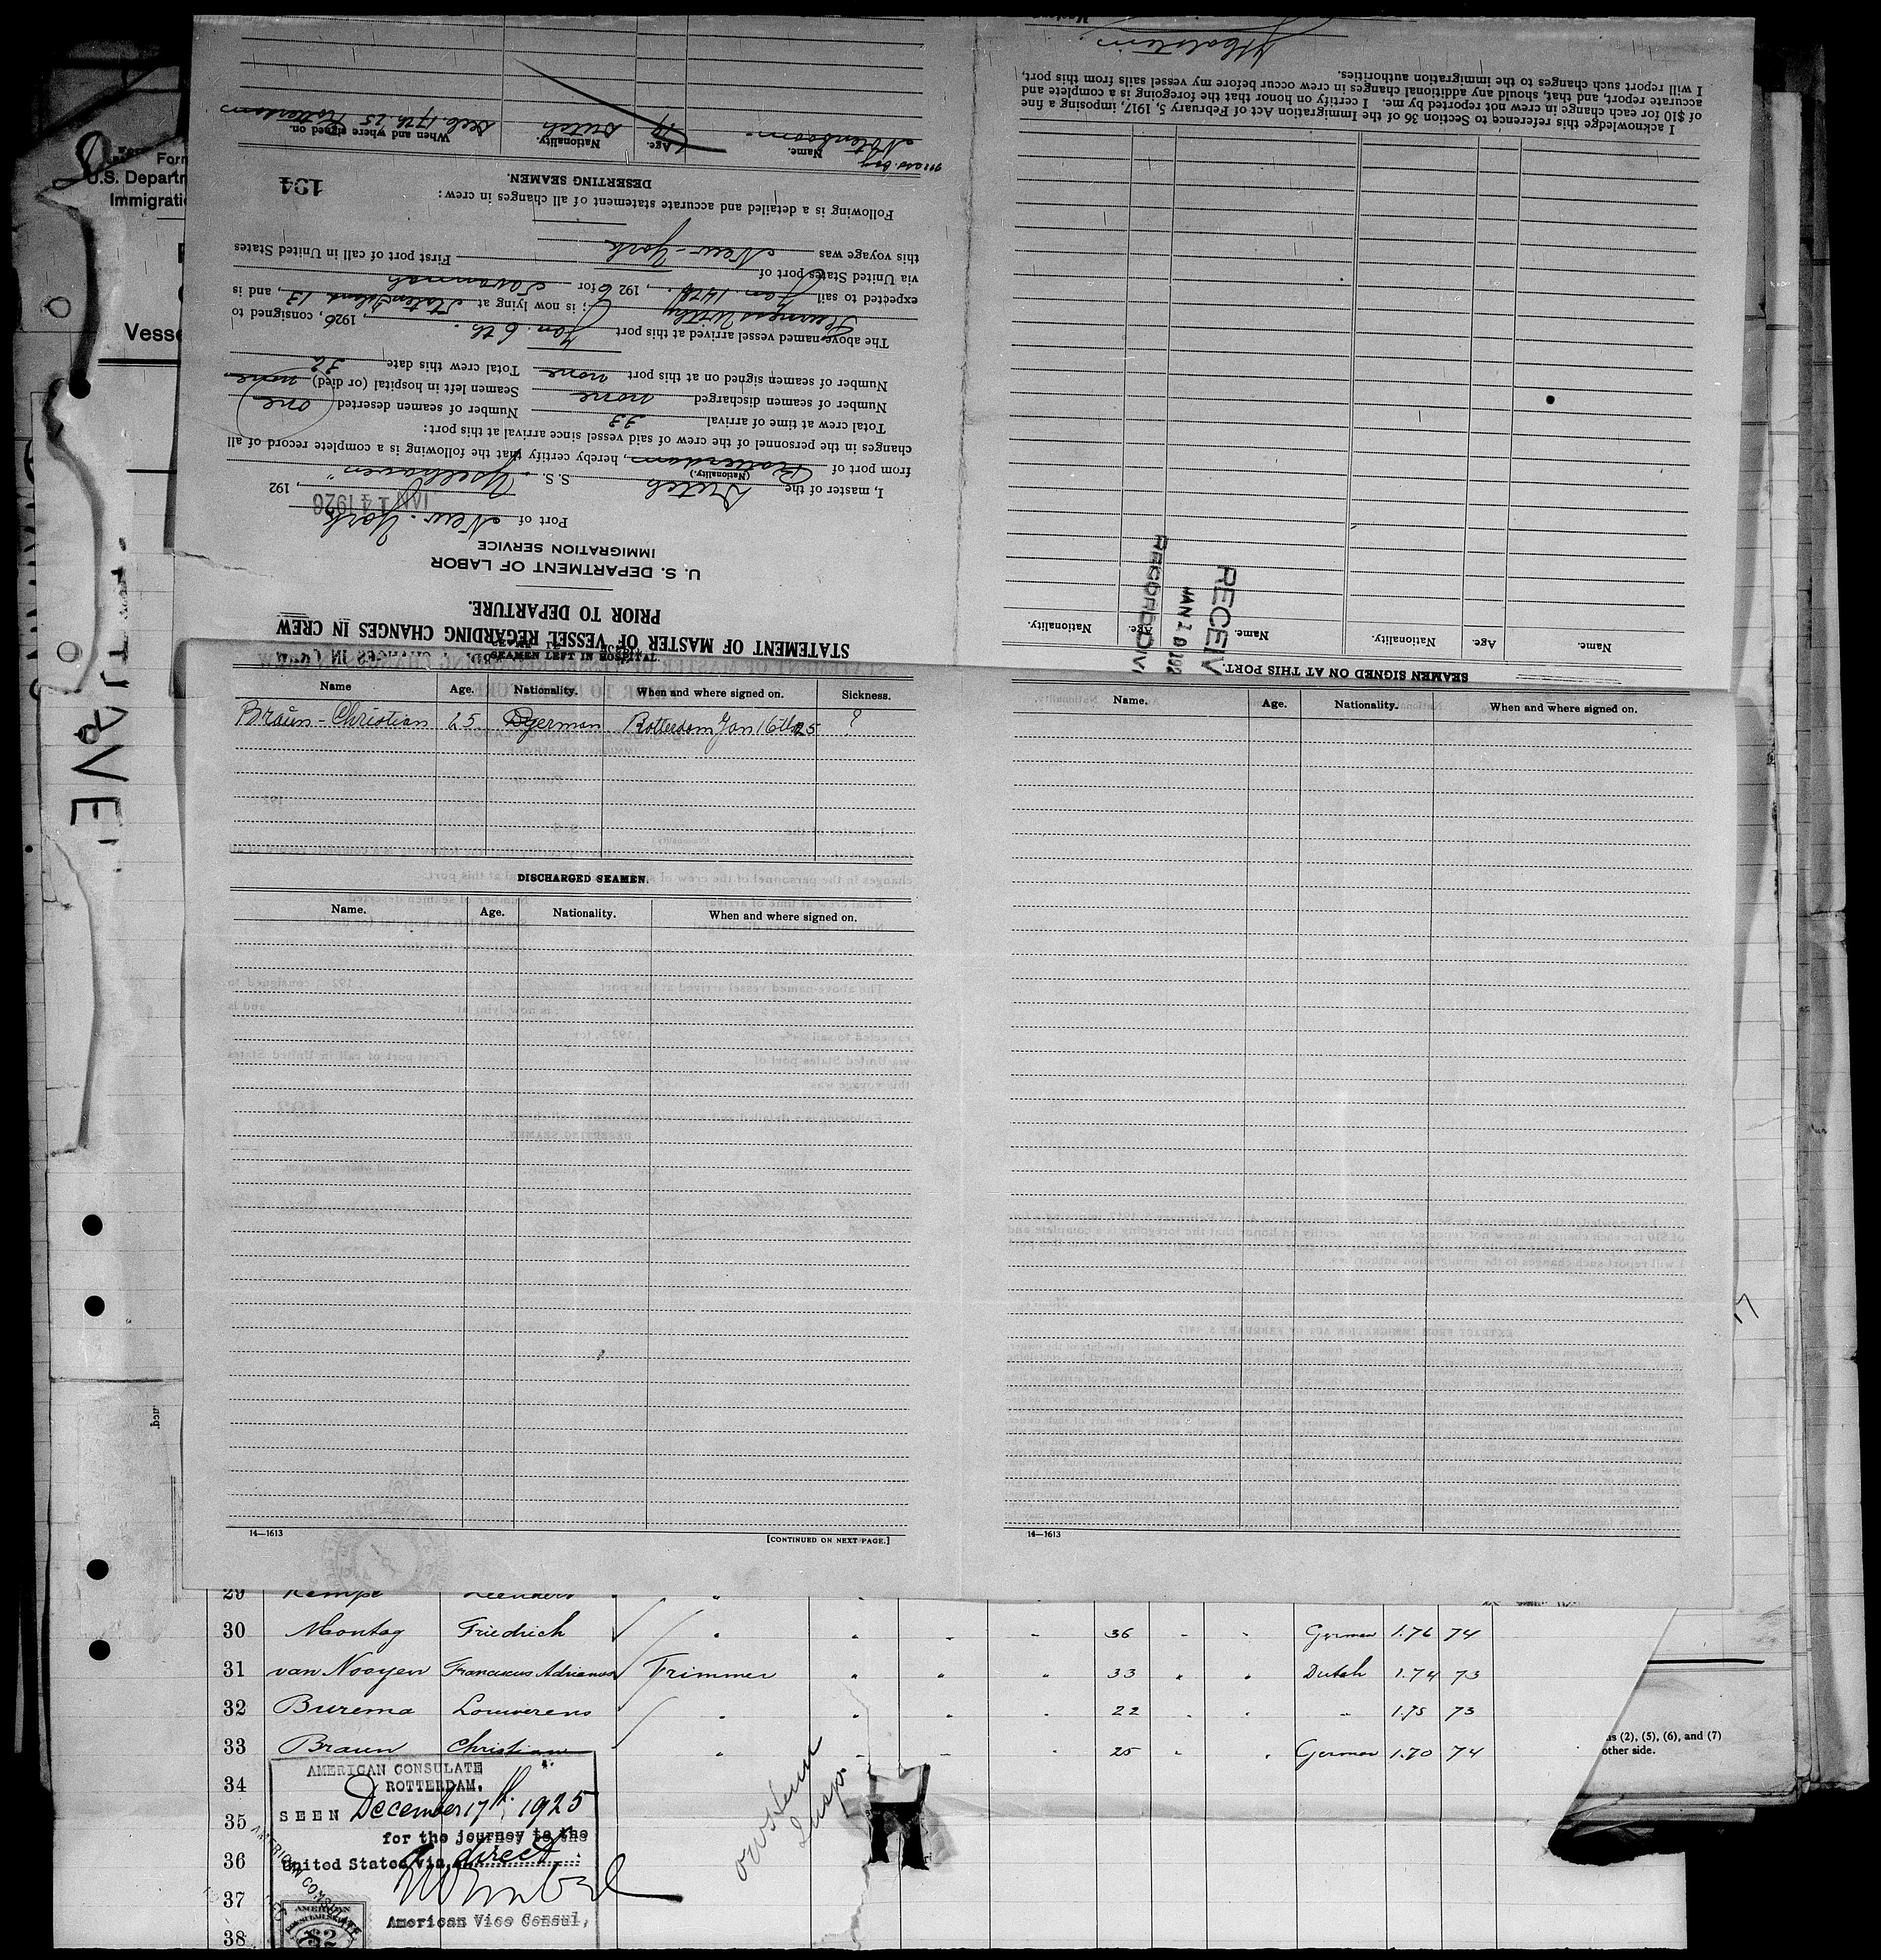 Form
U.S. Departm
Immigratio
Vesse
STATEMENT OF MASTER OF VESSEL REGARDING CHANGES IN CREW
PRIOR TO DEPARTURE.
U. S. DEPARTMENT OF LABOR
IMMIGRATION SERVICE
Port of New-York
JAN 14 1926, 192
I, master of the Dutch S. S. "Yselhaven"
(Nationality.)
from port of Rotterdam, hereby certify that the following is a complete record of all
changes in the personnel of the crew of said vessel since arrival at this port:
Total crew at time of arrival 33 Number of seamen deserted one
Number of seamen discharged none Seamen left in hospital (or died) none
Number of seamen signed on at this port none Total crew this date 32
The above-named vessel arrived at this port Jan. 6th., 1926, consigned to
Furness Withy; is now lying at Staten Island 13, and is
expected to sail Jan 14th., 1926 for Savannah
via United States port of
First port of call in United States
this voyage was New-York
Following is a detailed and accurate statement of all changes in crew:
194
DESERTING SEAMEN.
Name. Age. Nationality. When and where signed on.
mess boy Notenboom Dutch Dec. 17th. 25 Rotterdam
SEAMEN SIGNED ON AT THIS PORT.
Name. Age. Nationality. Name. Age. Nationality.
RECEIV
JAN 20 192
RECORD DIV.
I acknowledge this reference to Section 36 of the Immigration Act of February 5, 1917, imposing a fine
of $10 for each change in crew not reported by me. I certify on honor that the foregoing is a complete and
accurate report, and that, should any additional changes in crew occur before my vessel sails from this port,
I will report such changes to the immigration authorities.
SEAMEN LEFT IN HOSPITAL.
Name Age. Nationality. When and where signed on. Sickness.
Braun - Christian 25 German Rotterdam Jan 16th 25 ?
DISCHARGED SEAMEN.
Name. Age. Nationality. When and where signed on.
14—1613
[CONTINUED ON NEXT PAGE.]
Name. Age. Nationality. When and where signed on.
14—1613
29 Kempe Leendert
30 Montag Friedrich " " " " 36 " " German 1.76 74
31 van Nooyen Franciscus Adrianus Trimmer " " " 33 " " Dutch 1.74 73
32 Burema Louwerens " " " " 22 " " " 1.75 73
33 Braun Christian " " " " 25 " " German 1.70 74
34
35
36
37
38
AMERICAN CONSULATE
ROTTERDAM.
SEEN December 17th, 1925
for the journey to the
United States via direct
American Vice Consul,
AMERICAN CONSULATE
$2
Insp
ns (2), (5), (6), and (7)
other side.